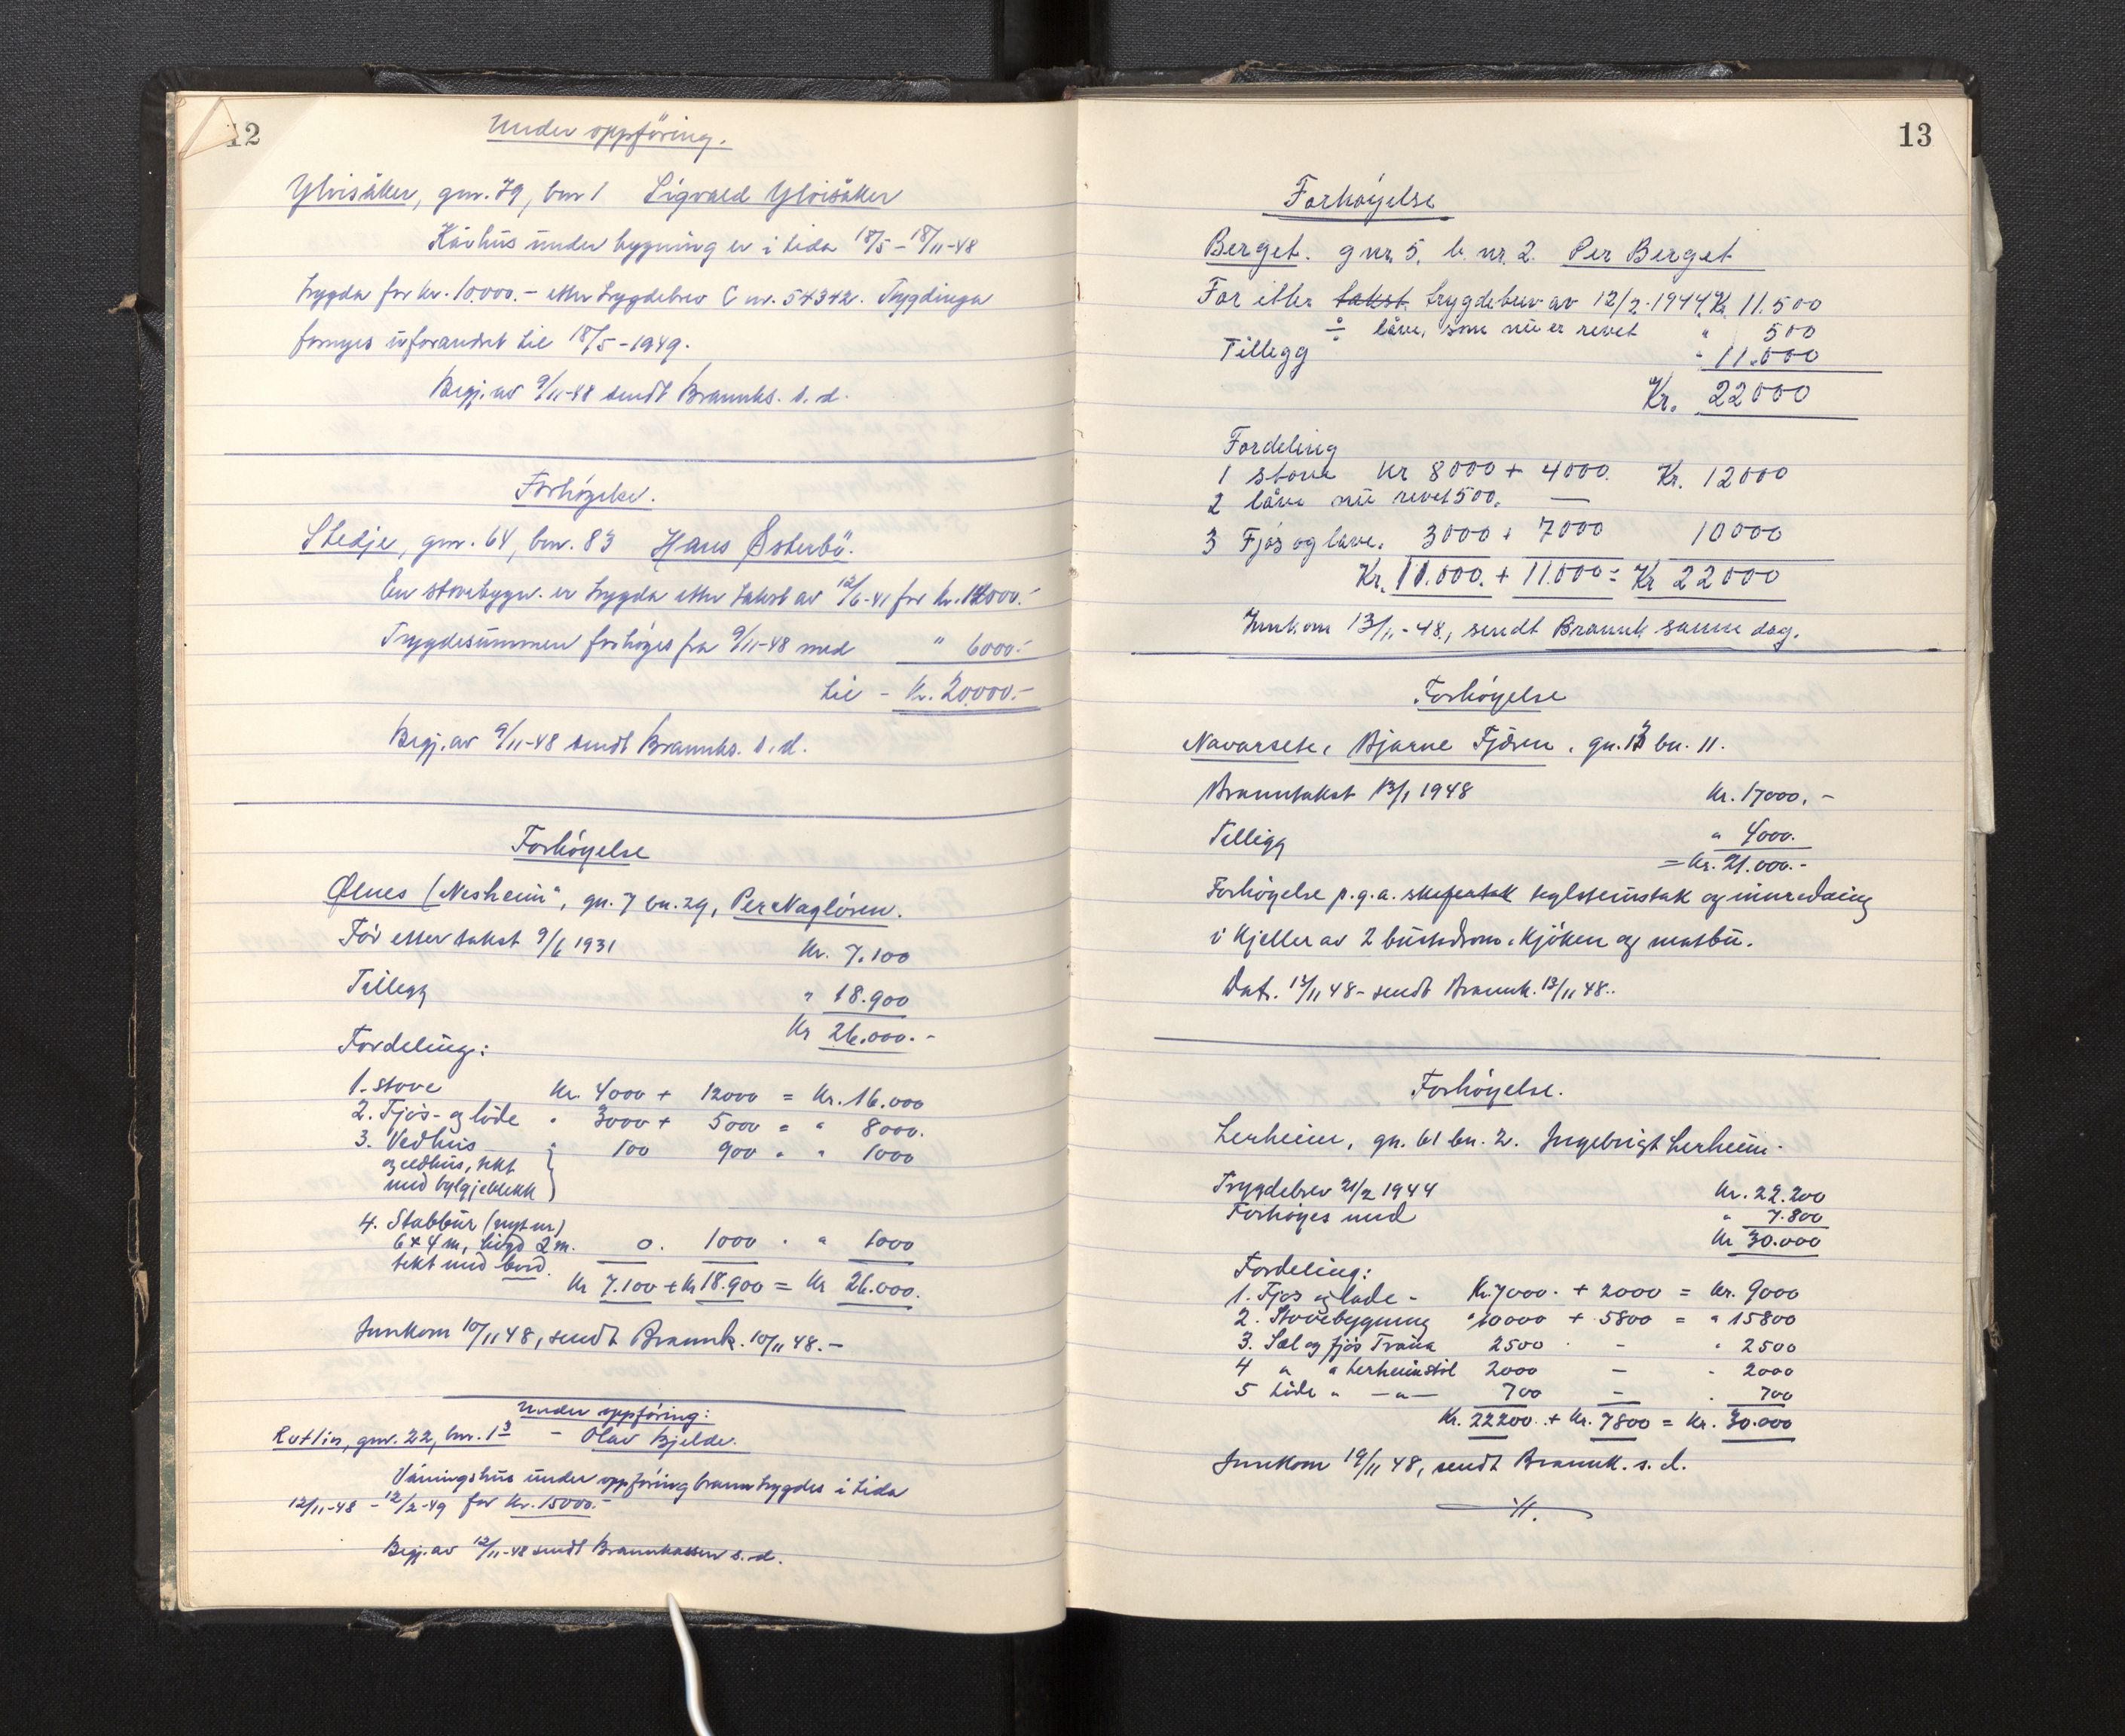 12
Under oppföring.
Ylvisåker, gnr. 79, bnr 1 Sigvald Ylvisåker
Kårhus under bygning er i tida 18/5 – 18/11-48
trygda for kr. 10.000.- etter trygdebrev C nr. 54342. Trygdinga
fornyes uforandret til 18/5-1949.
Begj. av 9/11-48 sendt Brannks. s. d.
Forhögelse.
Stedje, gnr. 64, bnr. 83 Hans Österbö.
En stovebygn. er trygda etter takst av 12/6-41 for kr. 14000.-
Trygdesummen forhöges fra 9/11-48 med " 6000.-
til - Kr. 20.000.-
Begj. av 9/11-48 sendt Brannks. s. d.
Forhöyelse
Ølnes ("Nesheim", gn. 7 bn. 29, Per Naglören.
För etter takst 9/6 1931 Kr. 7.100
Tillegg " 18.900
Kr 26.000.-
Fordeling:
1. stove Kr. 4000 + 12000 = Kr. 16.000
2. Fjös- og löde " 3000 + 5000 = " 8000.
3. Vedhus " 100 900 " " 1000
og eldhus, tekt
med bylgjeblekk
4. Stabbur (nytt nr.)
6x4 m, högd 2 m. 0. 1000 " " 1000
tekt med bord.
Kr 7.100 + Kr 18.900 = Kr 26.000.
Innkom 10/11 48, sendt Brannk. 10/11 48.-
Under oppföring:
Rutlin, gnr. 22, bnr. 13 – Olav Bjelde.
Våningshus under oppföring branntrygdes i tida
12/11-48 – 12/2-49 for kr. 15000.-
Begj. av 12/11-48 sendt Brannkassen s. d.
13
Forhöyelse
Berget. g nr. 5, b. nr. 2. Per Berget
För etter takst trygdebrev av 12/2-1944 Kr. 11.500
÷ låve, som nu er revet " 500
Tillegg " 11.000
Kr. 22000
Fordeling
1 stova Kr 8000 + 4000. Kr. 12000
2 låve nu revet 500. —
3 Fjös og låve. 3000 + 7000 10000
Kr. 11.000. + 11.000 = Kr 22000
Innkom 13/11-48, sendt Brannk samme dag.
Forhöyelse
Navarsete, Bjarne Fjären, gn. 13 bn. 11.
Branntakst 13/1 1948 Kr. 17000.-
Tillegg " 4000.
= Kr. 21.000.-
Forhöyelse p.g.a. skifertak teglsteinstak og innredning
i kjeller av 2 bustadrom, kjöken og matbu.
Dat. 12/11 48 - sendt Brannk. 13/11 48.
Forhöyelse.
Lerheim, gn. 61 bn. 2. Ingebrigt Lerheim.
Trygdebrev 21/2 1944 Kr. 22.200
Forhöyes med " 7.800
Kr 30.000
Fordeling:
1. Fjös og lade - Kr. 7000. + 2000 = Kr. 9000
2. Stovebygning " 10000 + 5800 = " 15800
3. Sel og fjös Tråna 2500 - " 2500
4 " " Lerheimstöl 2000 – " 2000
5 Löde " — " — 700 – " 700
Kr. 22200 + Kr. 7800 = Kr. 30.000
Innkom 19/11 48, sendt Brannk. s. d.